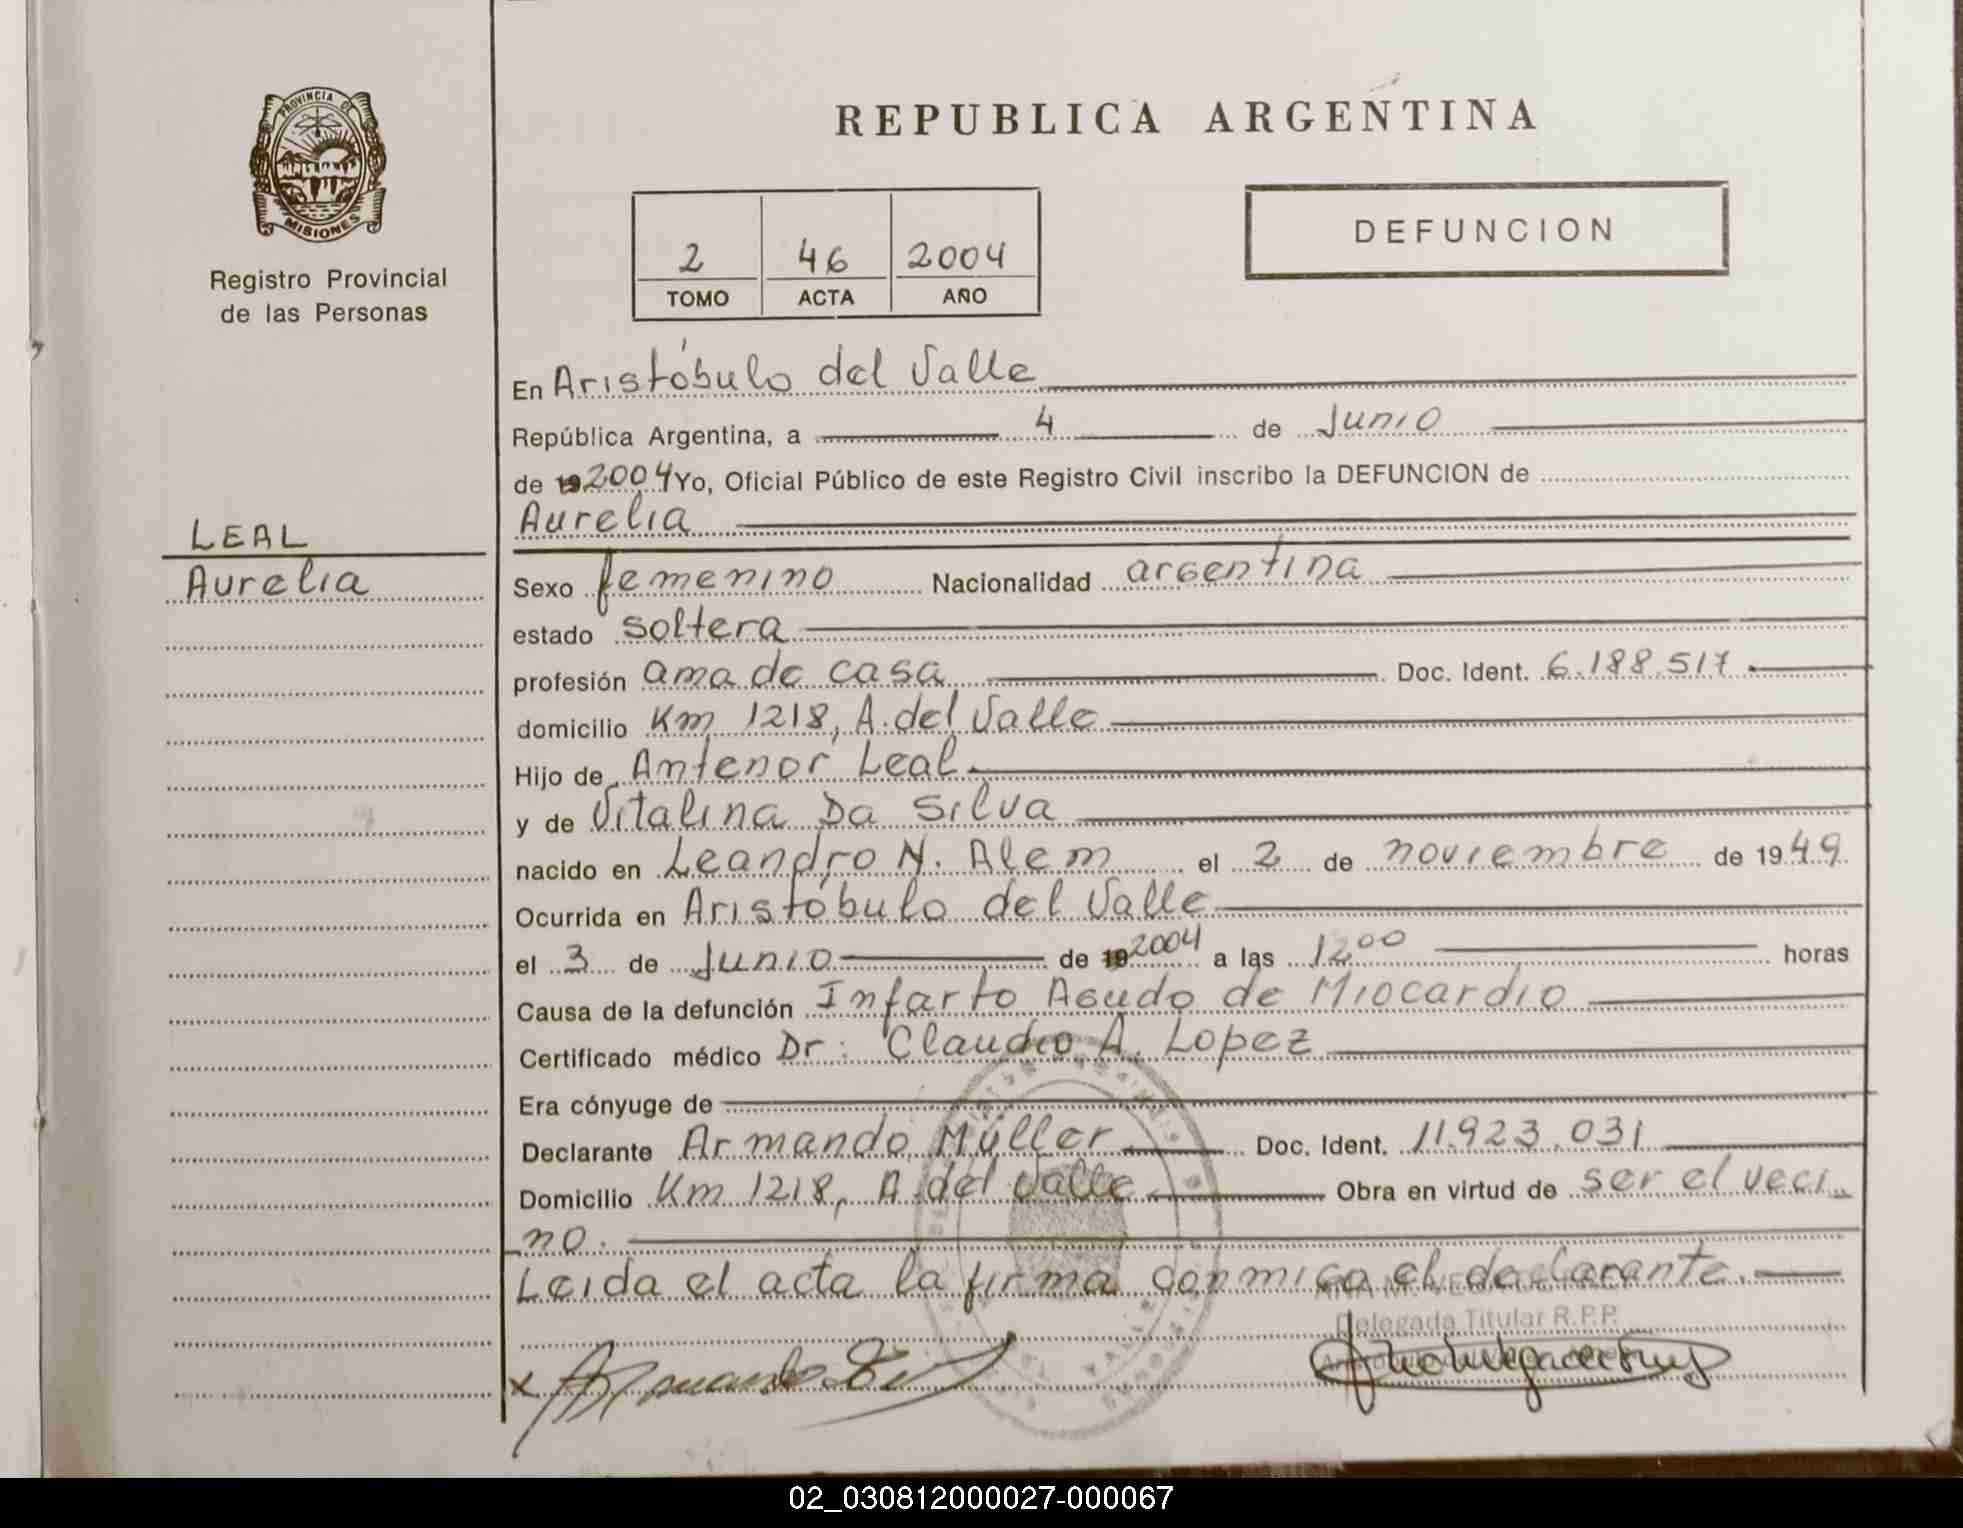 PROVINCIA DE
MISIONES
Registro Provincial
de las Personas
REPUBLICA ARGENTINA
2 46 2004
TOMO ACTA AÑO
DEFUNCION
En Aristóbulo del Valle
República Argentina, a 4 de Junio
de 19 2004 Yo, Oficial Público de este Registro Civil inscribo la DEFUNCION de
Aurelia
LEAL
Aurelia
Sexo femenino Nacionalidad argentina
estado soltera
profesión ama de casa Doc. Ident. 6.188.517
domicilio Km 1218, A. del Valle
Hijo de Antenor Leal
y de Vitalina Da Silva
nacido en Leandro N. Alem el 2 de noviembre de 1949
Ocurrida en Aristóbulo del Valle
el 3 de Junio de 19 2004 a las 12 00 horas
Causa de la defunción Infarto Agudo de Miocardio
Certificado médico Dr: Claudio A. Lopez
Era cónyuge de
Declarante Armando Müller Doc. Ident. 11.923.031
Domicilio Km 1218, A. del Valle Obra en virtud de ser el veci
no.
Leida el acta la firma conmigo el declarante.
Delegada Titular R.P.P.
x Armando
02_030812000027-000067